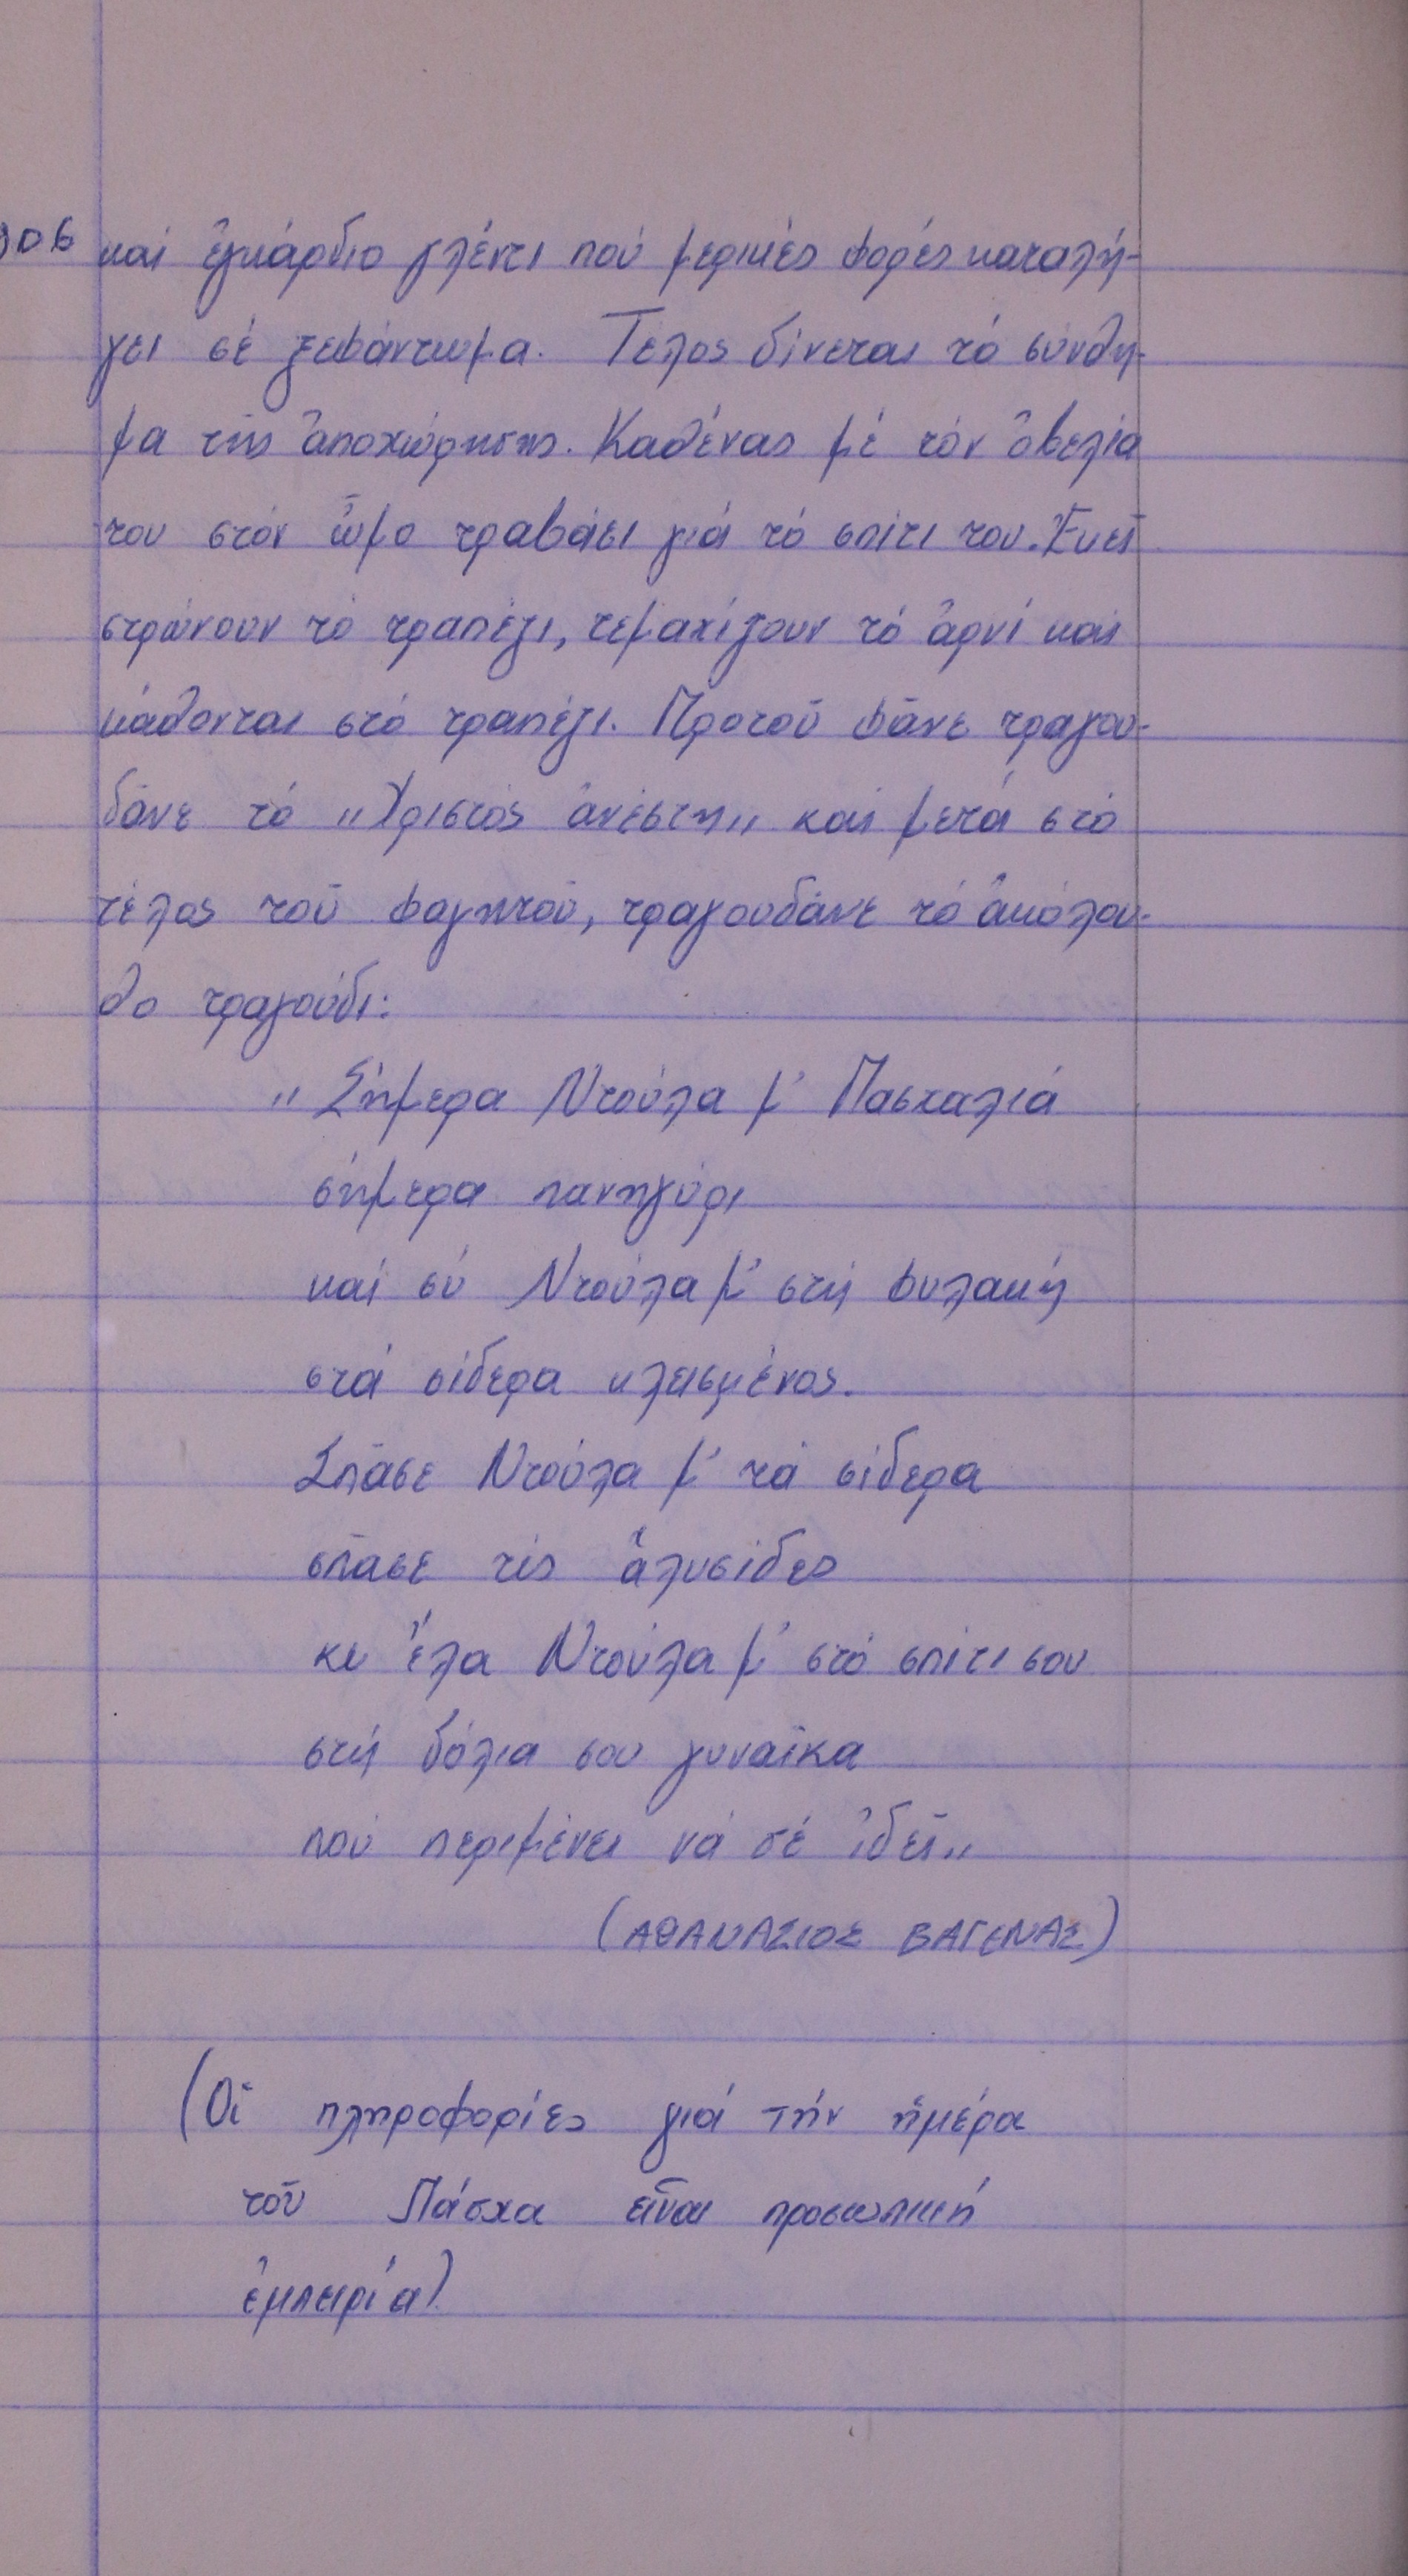 καί ἐγκάρδιο γλέντι πού μερικές φορές καταλή-
γει σέ ξεφάντωμα. Τέλος δίνεται τό σύνθη-
μα τῆς ἀποχώρησης. Καθένας μέ τόν ὀβελία
του στόν ὦμο τραβάει γιά τό σπίτι του. Ἐκεῖ
στρώνουν τό τραπέζι, τεμαχίζουν τό ἀρνί καί
κάθονται στό τραπέζι. Προτοῦ φᾶνε τραγου-
δᾶνε τό „Χριστός ἀνέστη„ καί μετά στό
τέλος τοῦ φαγητοῦ, τραγουδᾶνε τό ἀκόλου-
θο τραγούδι:
„Σήμερα Ντούλα μ' Πασχαλιά
σήμερα πανηγύρι
καί σύ Ντούλα μ' στή φυλακή
στά σίδερα κλεισμένος.
Σπᾶσε Ντούλα μ' τά σίδερα
σπᾶσε τίς ἁλυσίδες
κι ἔλα Ντούλα μ' στό σπίτι σου
στή δόλια σου γυναῖκα
πού περιμένει νά σέ ἰδεῖ„
(ΑΘΑΝΑΣΙΟΣ ΒΑΓΕΝΑΣ)
(Οἱ πληροφορίες γιά τήν ἡμέρα
τοῦ Πάσχα εἶναι προσωπική
ἐμπειρία)